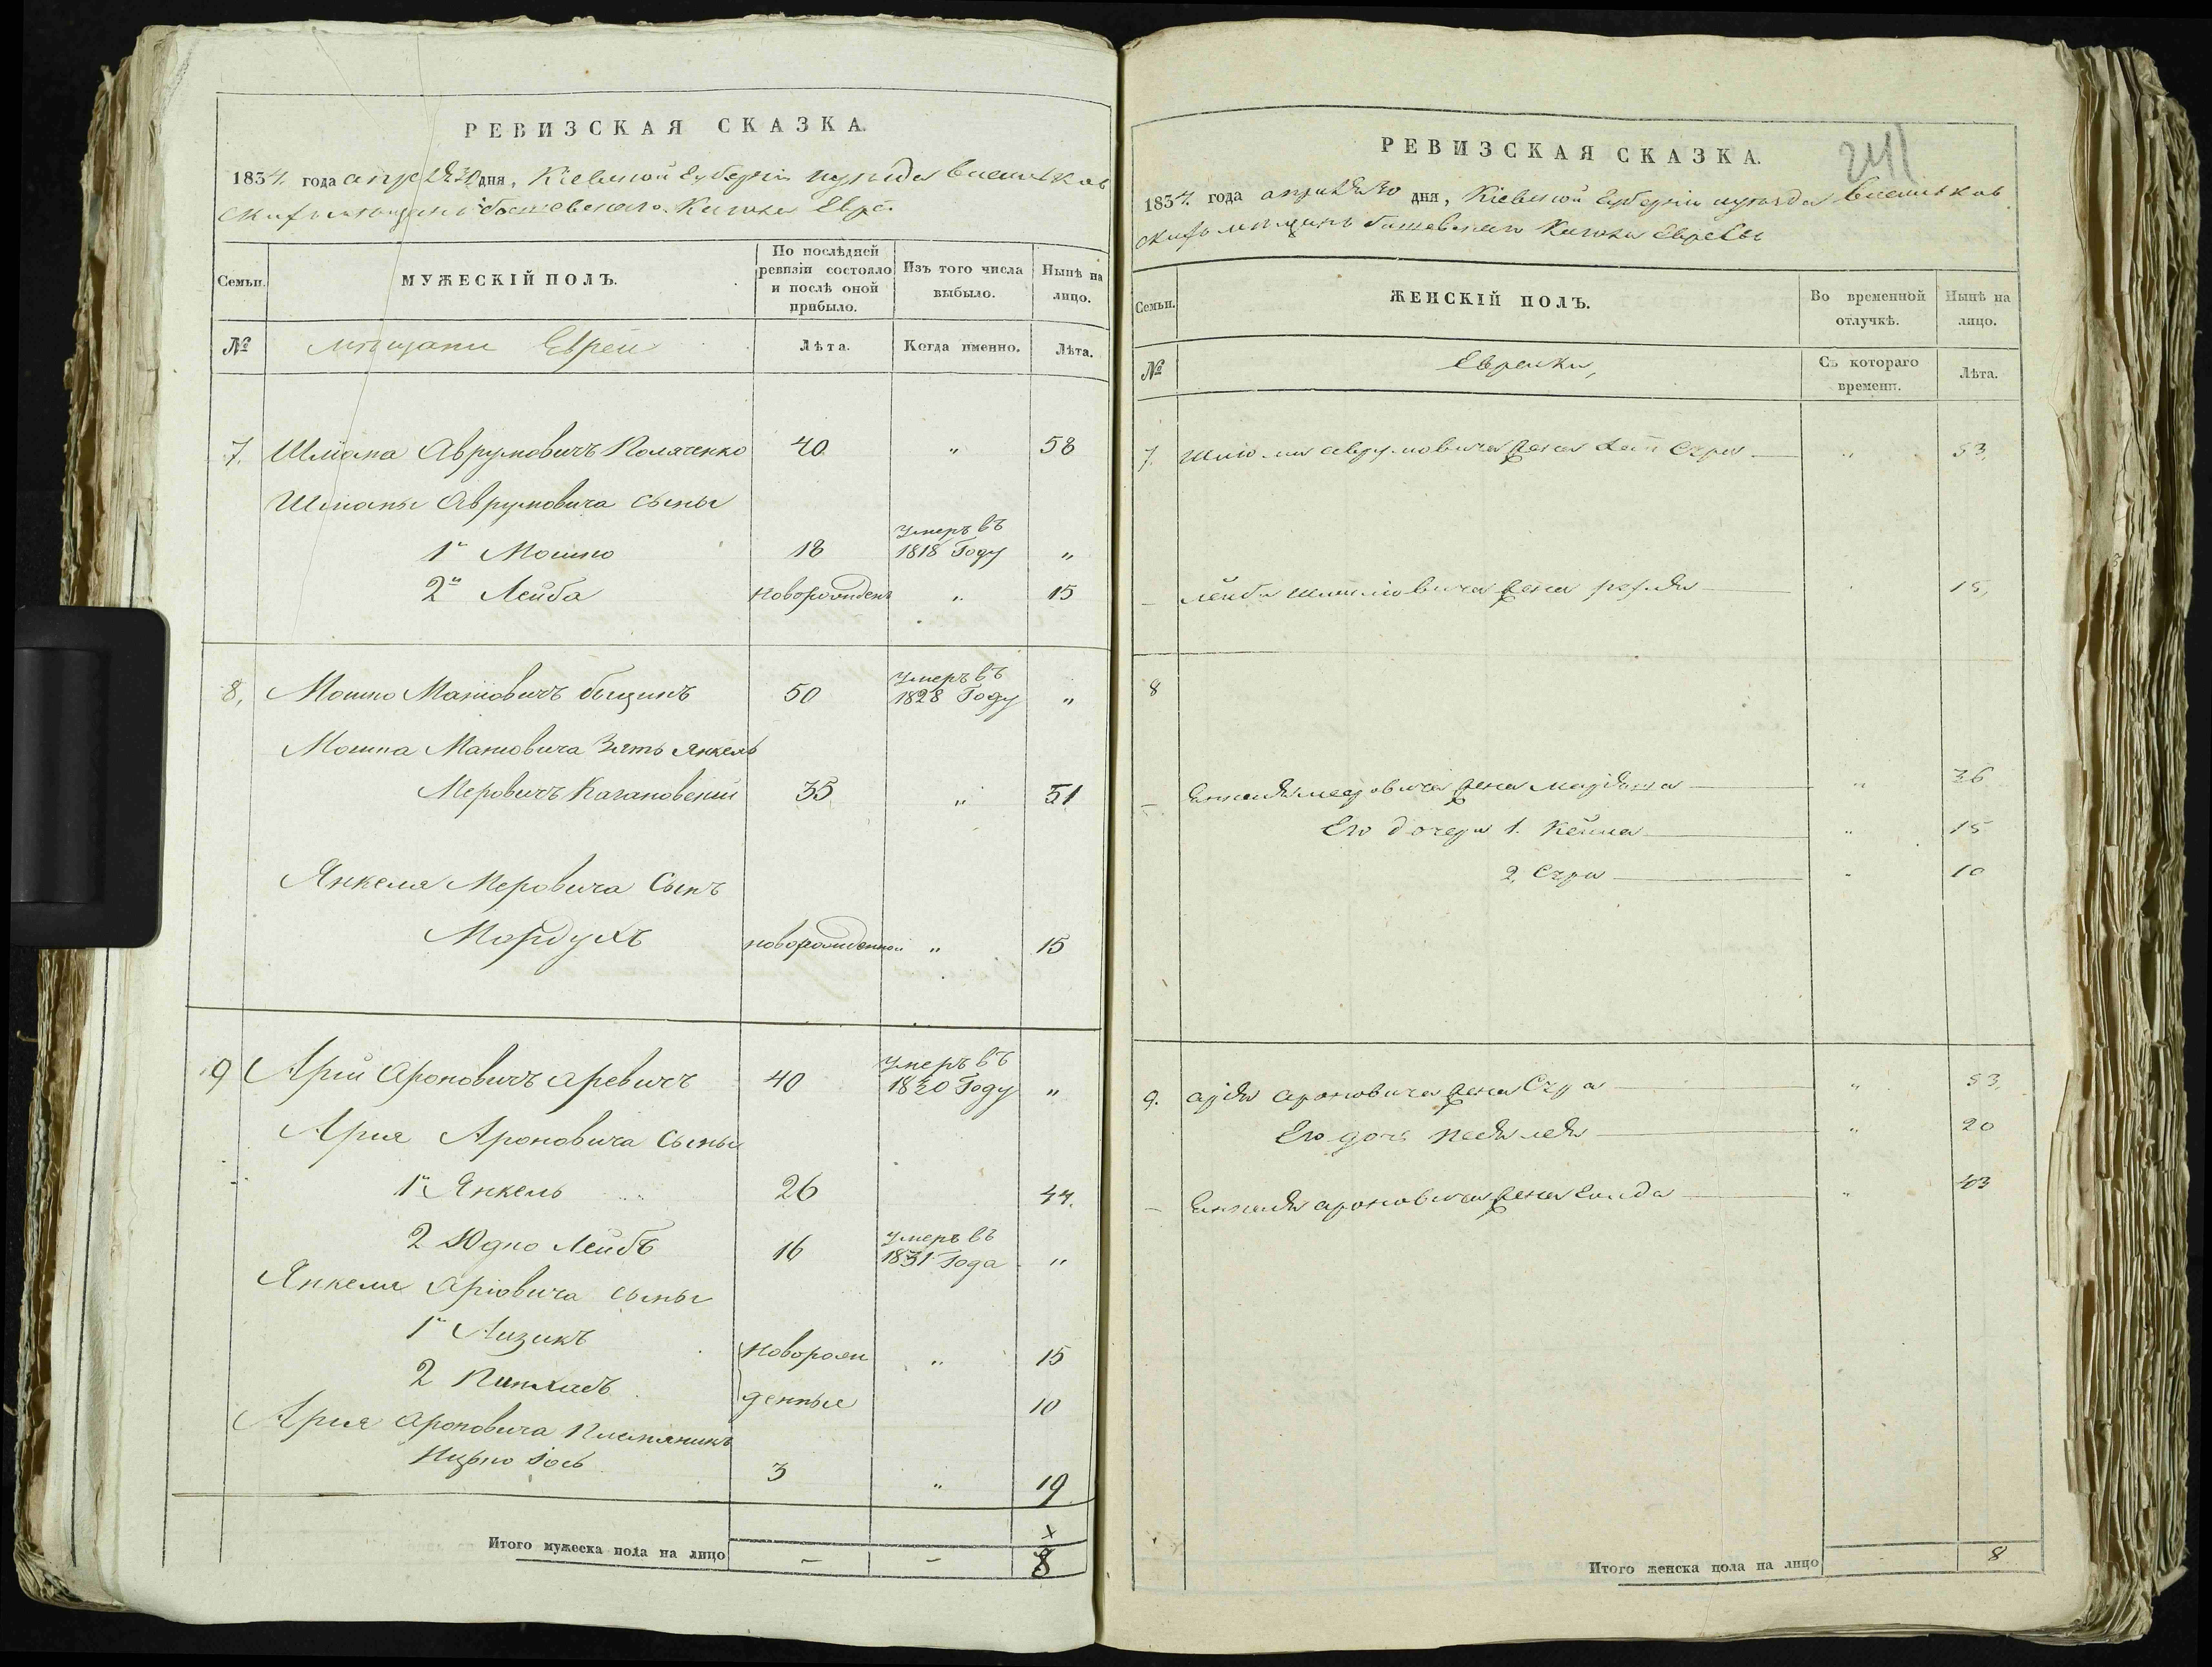 РЕВИЗСКАЯ СКАЗКА.
1834. года дня, Кіевской Губерніи
Кагала Евре.
Семьи.
МУЖЕСКІЙ ПОЛЪ.
По послѣдней ревизіи состояло и послѣ оной прибыло.
Изъ того числа выбыло.
Нынѣ на лицо.
№
мѣщане Евреи
Лѣта.
Когда именно.
Лѣта.
7. Шлиома Аврумовичъ Поляченко 40 " 58
Шлиомы Аврумовича сыны
1й Мошко 18 Умеръ въ 1818 Году "
2й Лейба Новорожденъ " 15
8, Мошко Маниовичъ 50 Умеръ въ 1828 Году "
Мошка Маниовича Зять Янкель
Меровичъ Кагановскій 35 " 51
Янкеля Меровича Сынъ
Мордухъ новорожденной " 15
9 Арій Ароновичъ Аревичъ 40 Умеръ въ 1830 Году "
Ария Ароновича Сыны
1й Янкель 26 44.
2 Юдко Лейбъ 16 Умеръ въ 1831 Года "
Янкеля Аріовича сыны
1й Аизикъ Новорож " 15
2 Пинхасъ денные 10
Ария Ароновича Племяникъ
Ицько Іось 3 " 19
Итого мужеска пола на лицо - - 8
РЕВИЗСКАЯ СКАЗКА.
241
1834. года апреля 30 дня, Кіевской Губерніи
Кагала Евреевъ
Семьи.
ЖЕНСКІЙ ПОЛЪ.
Во временной отлучкѣ.
Нынѣ на лицо.
№
Еврейки,
Съ котораго времени.
Лѣта.
7. Шлиомы Аврумовича жена Сура " 53,
Лейбы Шлиомовича жена рейзя 15,
8
Янкеля Меровича жена Марьяша " 36
Его дочери 1. Кейла " 15
2, Сура " 10
9. Арія Ароновича жена Сура " 53,
Его дочь " 20
Янкеля Ароновича жена " 43
Итого женска пола на лицо 8